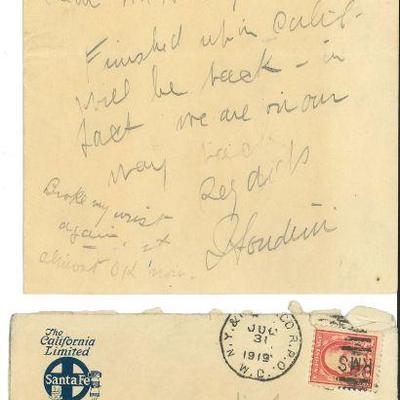 Finished up in Calif-
Will be back - in
fact we are on our
way back
Regards
Houdini
Broke my wrist
again. it
almost OK now.
The
California
Limited
Santa Fe
N.Y. & CO R.P.O.
JUL
31
1919
W.D.
RMS